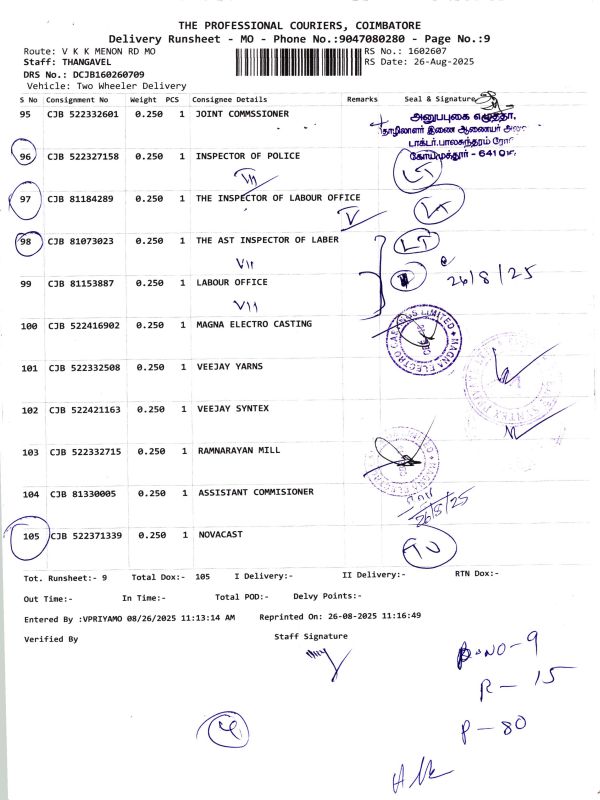 THE PROFESSIONAL COURIERS, COIMBATORE
Delivery Runsheet - MO - Phone No.:9047080280 - Page No.:9
Route: V K K MENON RD MO RS No.: 1602607
Staff: THANGAVEL RS Date: 26-Aug-2025
DRS No.: DCJB160260709
Vehicle: Two Wheeler Delivery
S No Consignment No Weight PCS Consignee Details Remarks Seal & Signature
95 CJB 522332601 0.250 1 JOINT COMMSSIONER
அனுப்புகை எழுத்தர்,
தொழிலாளர் இணை ஆணையர்
டாக்டர்.பாலசுந்தரம்
கோயமுத்தூர் - 641
96 CJB 522327158 0.250 1 INSPECTOR OF POLICE LT
VII
97 CJB 81184289 0.250 1 THE INSPECTOR OF LABOUR OFFICE
V
98 CJB 81073023 0.250 1 THE AST INSPECTOR OF LABER LT
VII
26/8/25
99 CJB 81153887 0.250 1 LABOUR OFFICE
VII
100 CJB 522416902 0.250 1 MAGNA ELECTRO CASTING
MAGNA ELECTRO CASTINGS LIMITED
101 CJB 522332508 0.250 1 VEEJAY YARNS
102 CJB 522421163 0.250 1 VEEJAY SYNTEX
103 CJB 522332715 0.250 1 RAMNARAYAN MILL
104 CJB 81330005 0.250 1 ASSISTANT COMMISIONER
26/8/25
105 CJB 522371339 0.250 1 NOVACAST
Tot. Runsheet:- 9 Total Dox:- 105 I Delivery:- II Delivery:- RTN Dox:-
Out Time:- In Time:- Total POD:- Delvy Points:-
Entered By :VPRIYAMO 08/26/2025 11:13:14 AM Reprinted On: 26-08-2025 11:16:49
Verified By Staff Signature
NO-9
R - 15
P - 80
4